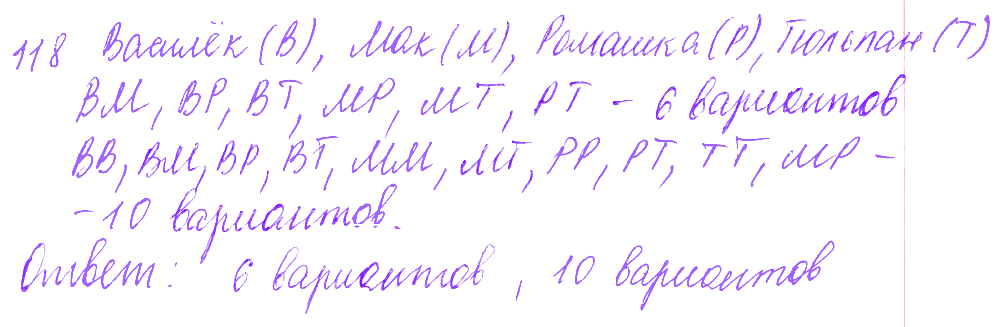 118 Василёк (В), Мак (М), Ромашка (Р), Тюльпан (Т)
ВМ, ВР, ВТ, МР, МТ, РТ – 6 вариантов
ВВ, ВМ, ВР, ВТ, ММ, МТ, РР, РТ, ТТ, МР –
– 10 вариантов.
Ответ: 6 вариантов, 10 вариантов